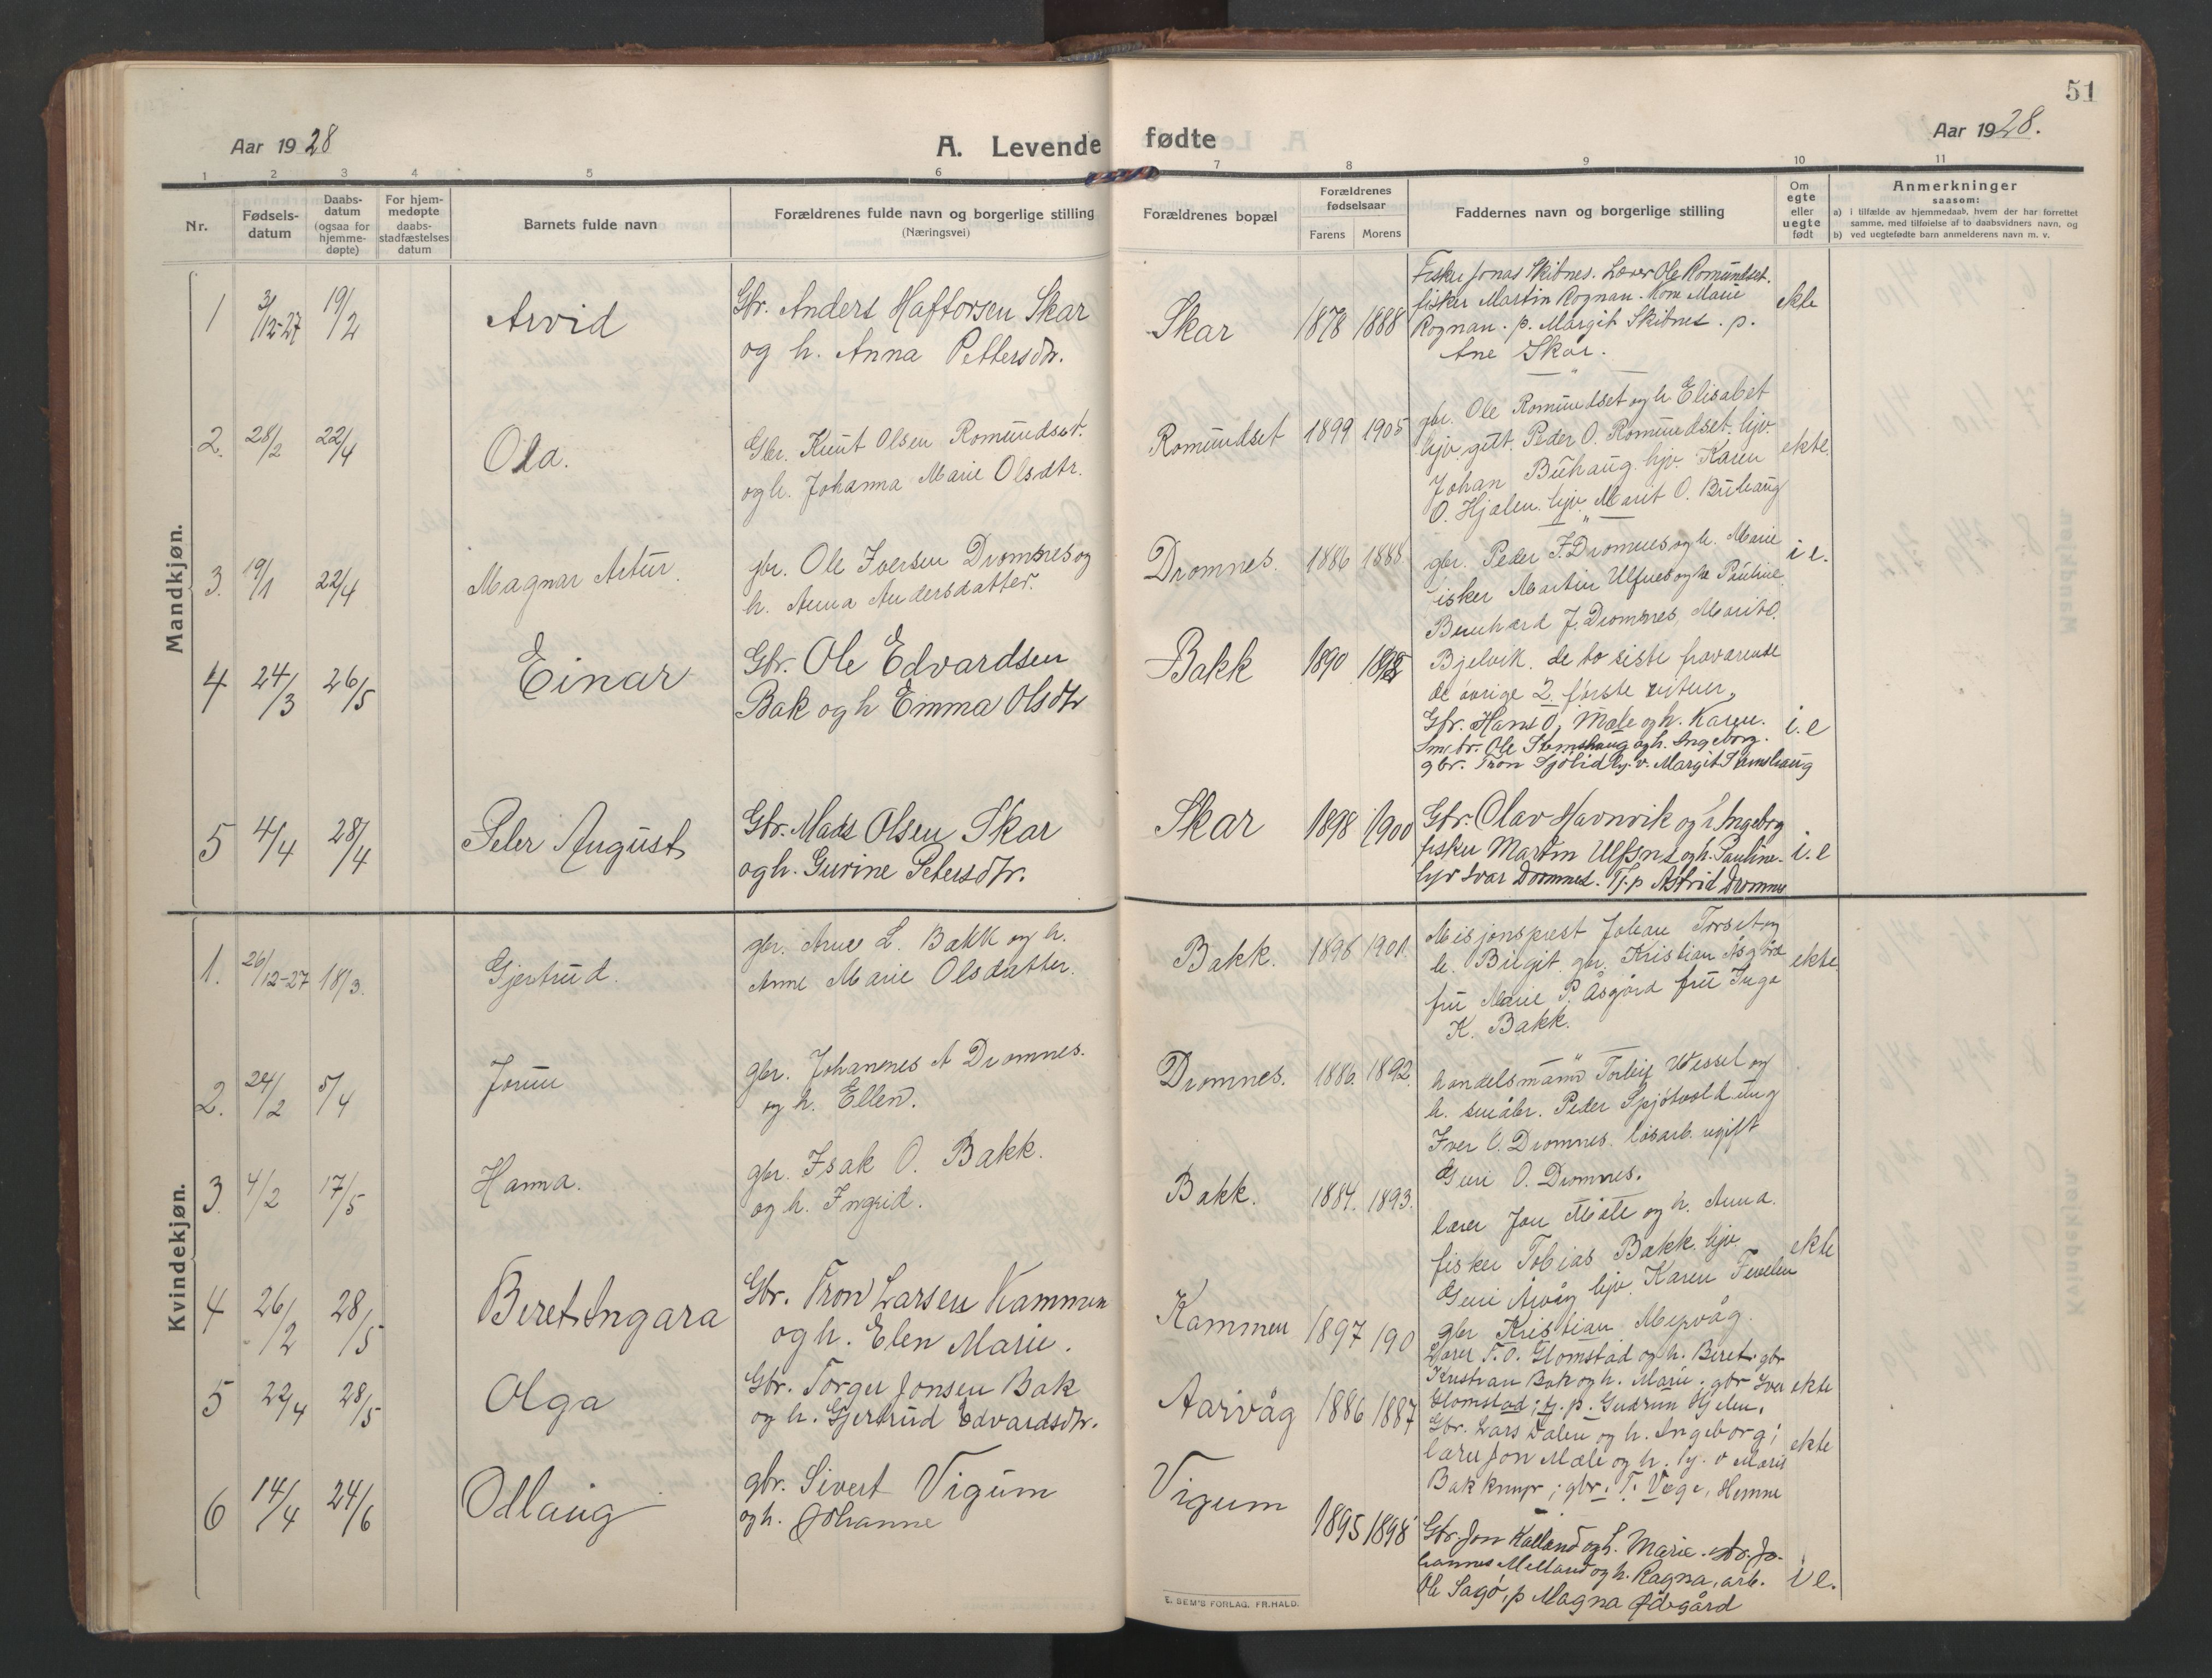 51
Aar 1928
A. Levende fødte
Aar 1928.
1 2 3 4 5 6 7 8 9 10 11
Nr.
Fødsels-
datum
Daabs-
datum
(ogsaa for
hjemme-
døpte)
For hjem-
medøpte
daabs-
stadfæstelses
datum
Barnets fulde navn
Forældrenes fulde navn og borgerlige stilling
(Næringsvei)
Forældrenes bopæl
Forældrenes
fødselsaar
Farens Morens
Faddernes navn og borgerlige stilling
Om
egte
eller
uegte
født
Anmerkninger
saasom:
a) i tilfælde av hjemmedaab, hvem der har forrettet
samme, med tilføielse af to daabsvidners navn, og
b) ved uegtefødte barn anmelderens navn m. v.
Mandkjøn.
1 3/12-27 19/2 Arvid
Gbr. Anders Haftorsen Skar
og h. Anna Pettersdtr.
Skar 1878 1888
Fisker Jonas Skibnes. Lærer Ole Romundset.
fisker Martin Rognan. Kone Marie
Rognan. p. Margit Skibnes. p.
Ane Skar.
ekte
2. 28/2 22/4 Ola.
Gbr. Knut Olsen Romundset.
og h. Johanna Marie Olsdtr.
Romundset 1899 1905
gbr. Ole Romundset og h Elisabet
hjv. gutt. Peder O. Romundset. hjv.
Johan Buhaug. hjv. Karen
O. Hjalen. hjv. Marit O. Buhaug
ekte.
3. 19/1 22/4 Magnar Artur.
gbr. Ole Iversen Dromnes og
h. Anna Andersdatter.
Dromnes. 1886 1888.
gbr. Peder I. Dromnes og h. Marie
fisker Martin Ulfsnes og h. Pauline.
Bernhard J. Dromnes, Marit O.
Bjelvik. de to siste fraværende
de øvrige 2 første vitner.
i e.
4 24/3 26/5 Einar
Gbr. Ole Edvardsen
Bak og h Emma Olsdtr
Bakk 1890
Gbr. Hans O. Mæle og h. Karen.
Smbr. Ole Stemshaug og h. Ingeborg.
gbr. Tron Sjølid hj. v. Margit Stemshaug
i. e
5 4/4 28/4 Peter August
Gbr. Mads Olsen Skar
og h. Gurine Petersdtr.
Skar 1898 1900
Gbr. Olav Havnvik og h Ingeborg
fisker Martin Ulfsnes og h. Pauline.
hjv Ivar Dromnes. Tj. p Astrid Dromnes
i. e
Kvindekjøn.
1. 26/12-27 18/3. Gjertrud.
gbr. Arne L. Bakk og h.
Anne Marie Olsdatter.
Bakk. 1896 1901.
Misjonsprest Johan Torset og
h. Birgit. gbr. Kristian Åsgård
fru Marie P. Åsgård fru Inga
K. Bakk.
ekte.
2. 24/2 5/4 Jorun
gbr. Johannes A Dromnes.
og h. Ellen.
Dromnes. 1886. 1892.
handelsmann Torleif Wessel og
h. småbr. Peder Spjøtvold ung
Iver O. Dromnes. løsarb. ugift
Guri O. Dromnes.
3. 4/2 17/5 Hanna.
gbr. Isak O. Bakk.
og h. Ingrid.
Bakk. 1884. 1893.
lærer Jon Mæle og h. Anna.
fisker Tobias Bakk. hjv.
Guri Årvåg hjv. Karen Fevelen
gbr Kristian Mjovåg.
ekte
4 26/2 28/5 Beret Ingara
Gbr. Tron Larsen Kammen
og h. Elen Marie.
Kammen 1897 190
Lærer T. O. Glomstad og h. Beret. gbr
Kristian Bak og h. Marie. gbr Iver
Glomstad; tj. p. Gudrun Hjelen.
ekte
5 22/4 28/5 Olga
Gbr. Torger Jonsen Bak
og h. Gjertrud Edvardsdtr.
Aarvåg 1886 1887
Gbr. Lars Dalen og h. Ingeborg;
lærer Jon Mæle og h. tj. v Marit
Bakkmyr; gbr. T. Vage, Hemne
ekte
6 14/4 24/6 Odlaug
gbr. Sivert Vigum
og h. Johanne
Vigum 1895 1898
Gbr. Jon Kalland og h. Marie. gbr. Jo-
hannes Melland og h. Ragna, arb.
Ole Sagø, p Magna Ødegård
i e.
E. SEM'S FORLAG, FR.HALD.